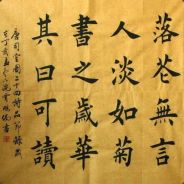 落花無言
人淡如菊
書之歲華
其曰可讀
唐司空圖二十四詩品節錄